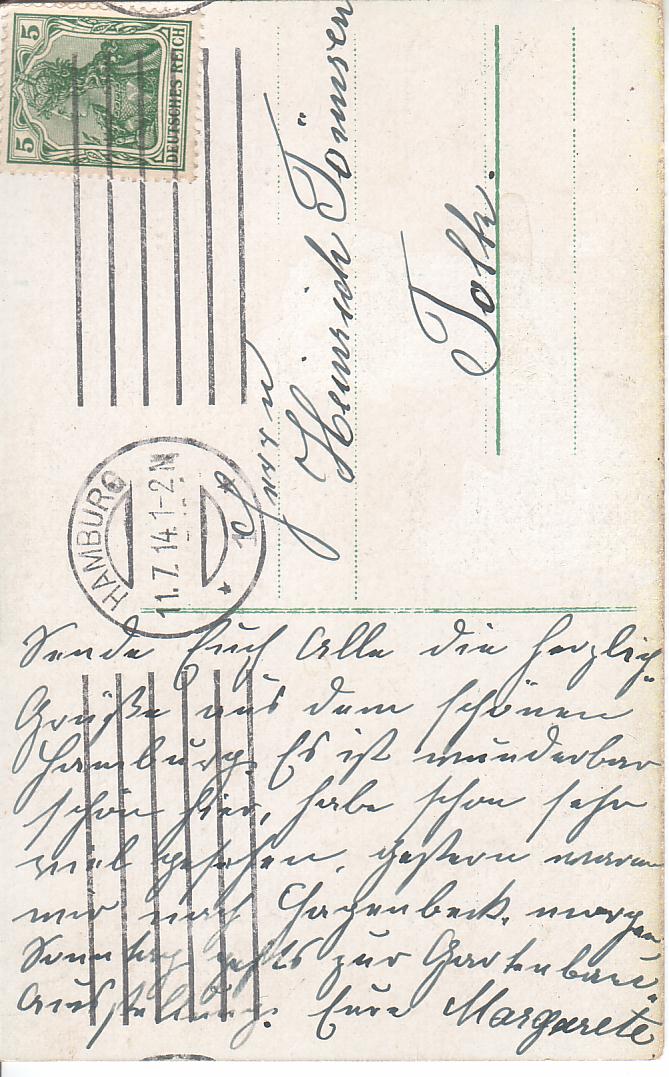 5 5
DEUTSCHES REICH
HAMBURG
11.7.14.1-2 N
* 1 *
Herrn
Heinrich Tömsen
Tolk.
Sende Euch Alle die herzlich.
Grüße aus dem schönen
Hamburg. Es ist wunderbar
schön hier, habe schon sehr
viel gesehen, gestern waren
wir nach Hagenbeck, morgen
Sonntag gehts zur Gartenbau-
Ausstellung. Eure Margarete